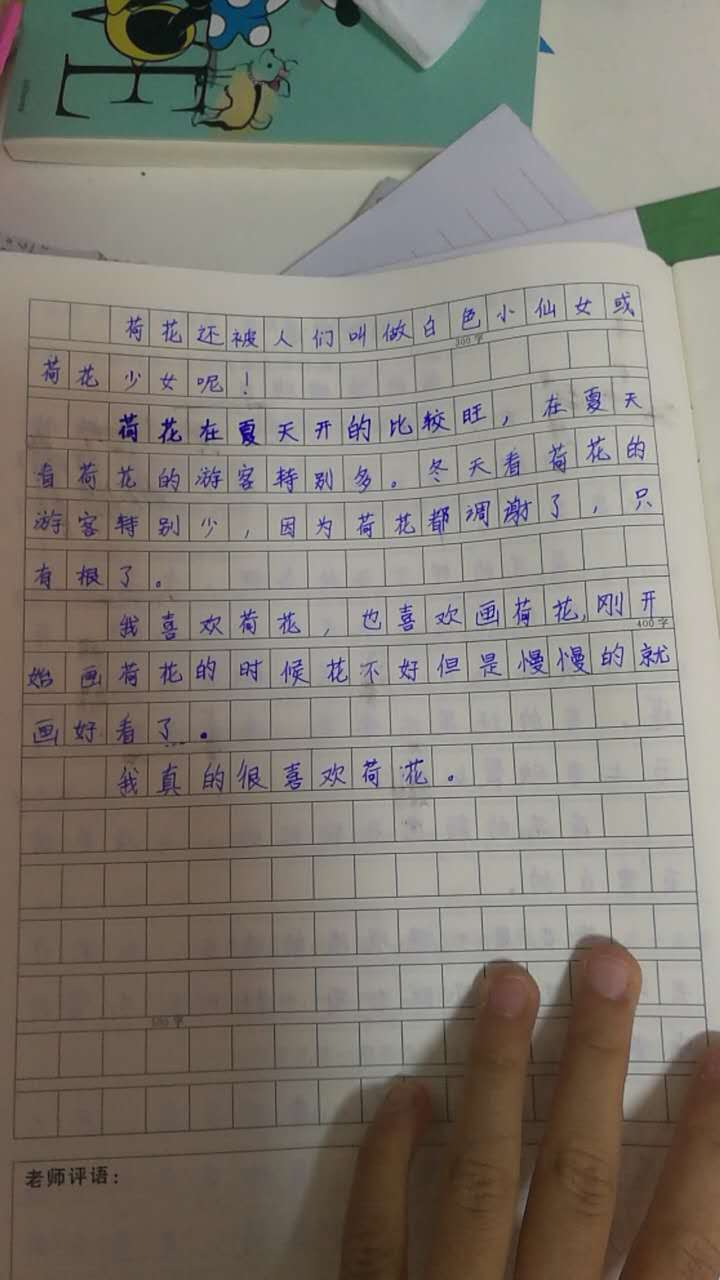 荷花还被人们叫做白色小仙女或
300字
荷花少女呢！
荷花在夏天开的比较旺，在夏天
看荷花的游客特别多。冬天看荷花的
游客特别少，因为荷花都调谢了，只
有根了。
我喜欢荷花，也喜欢画荷花，刚开
400字
始画荷花的时候花不好但是慢慢的就
画好看了。
我真的很喜欢荷花。
500字
老师评语：